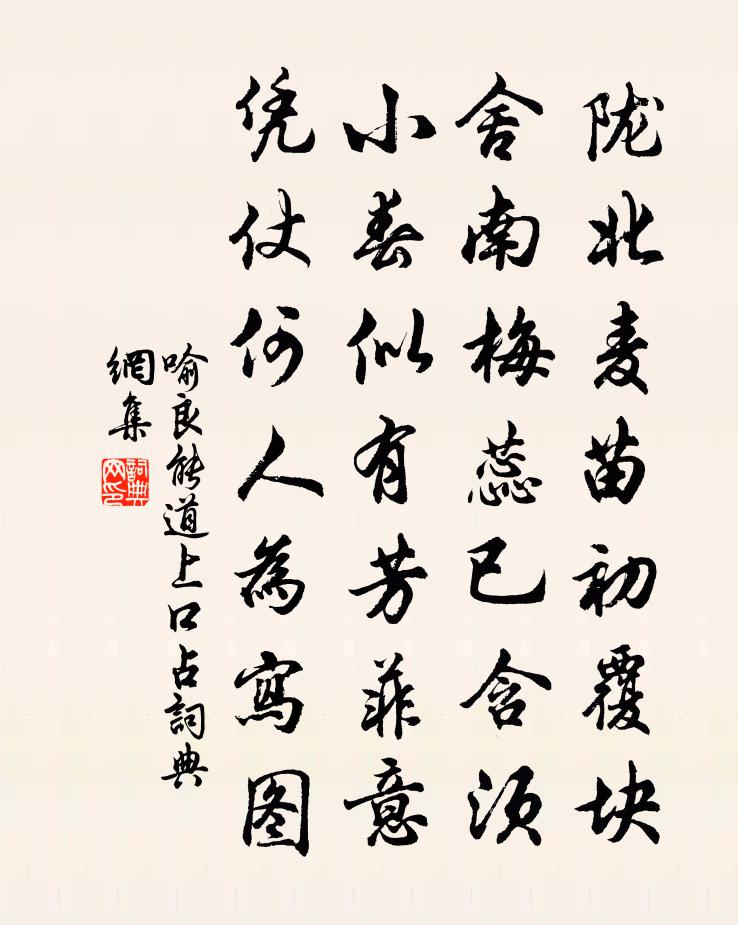 陇北麦苗初覆块
舍南梅蕊已含须
小春似有芳菲意
凭仗何人為寫图
喻良能道上口占詞典
網集
詞典
网印